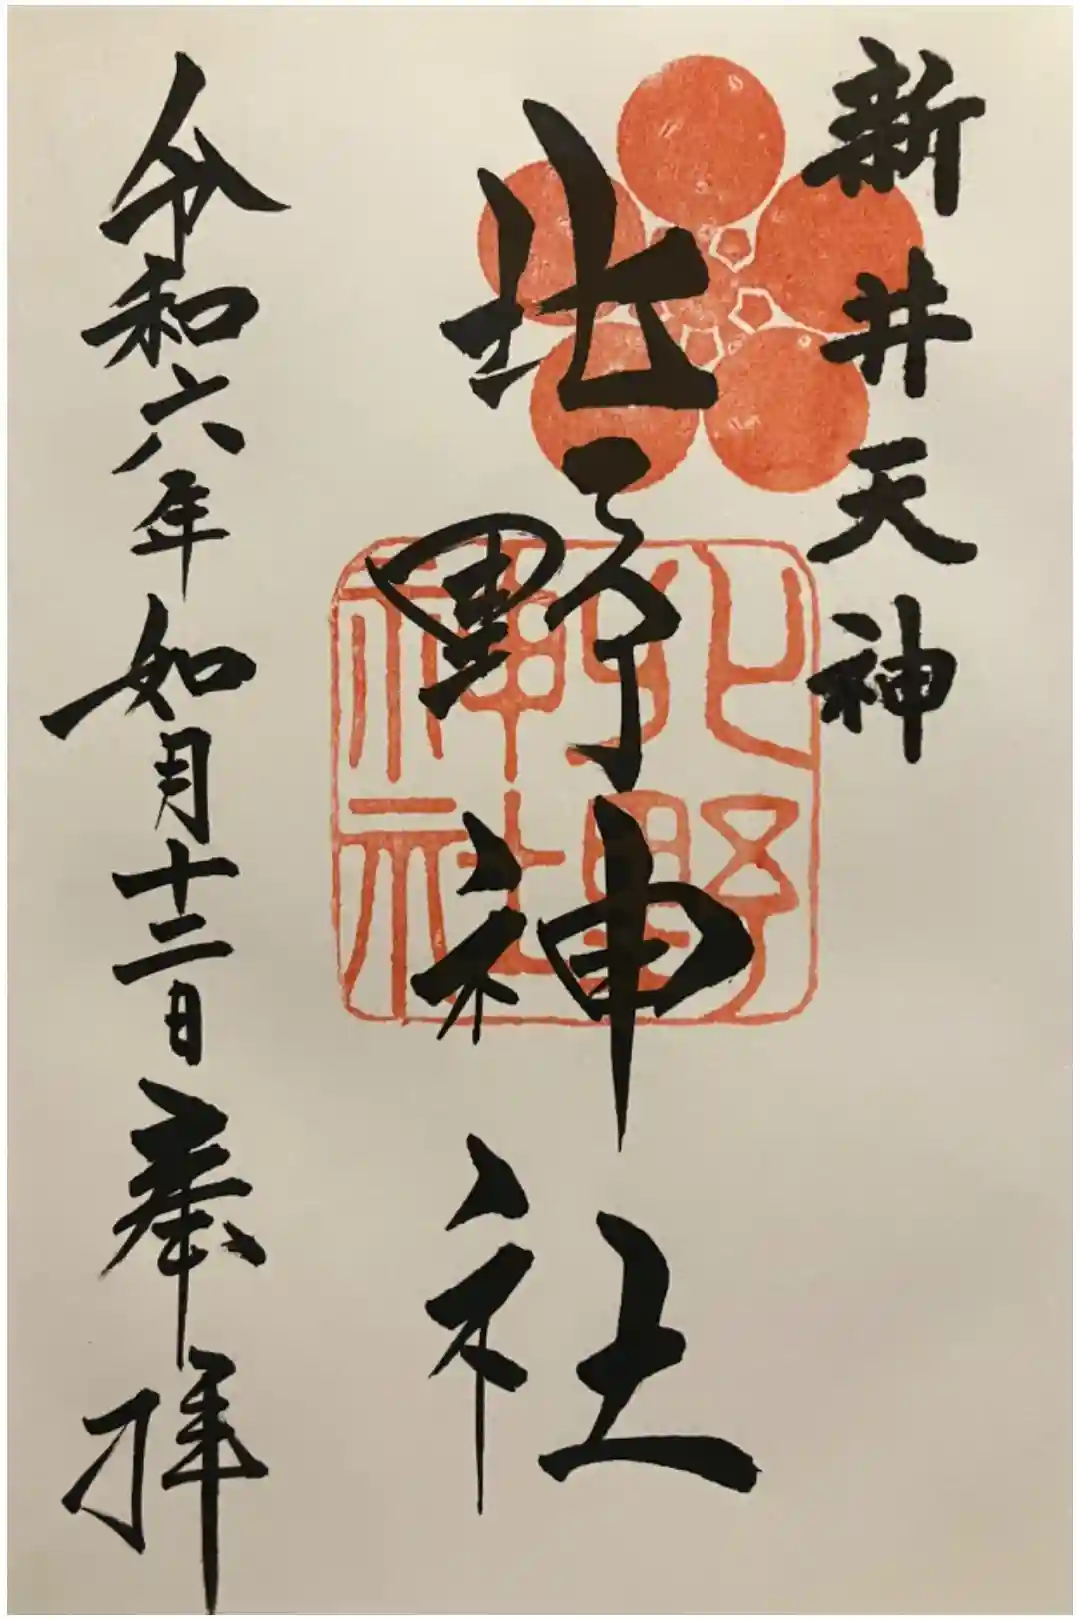 新井天神
北野神社
北野神社
令和六年如月十二日奉拝